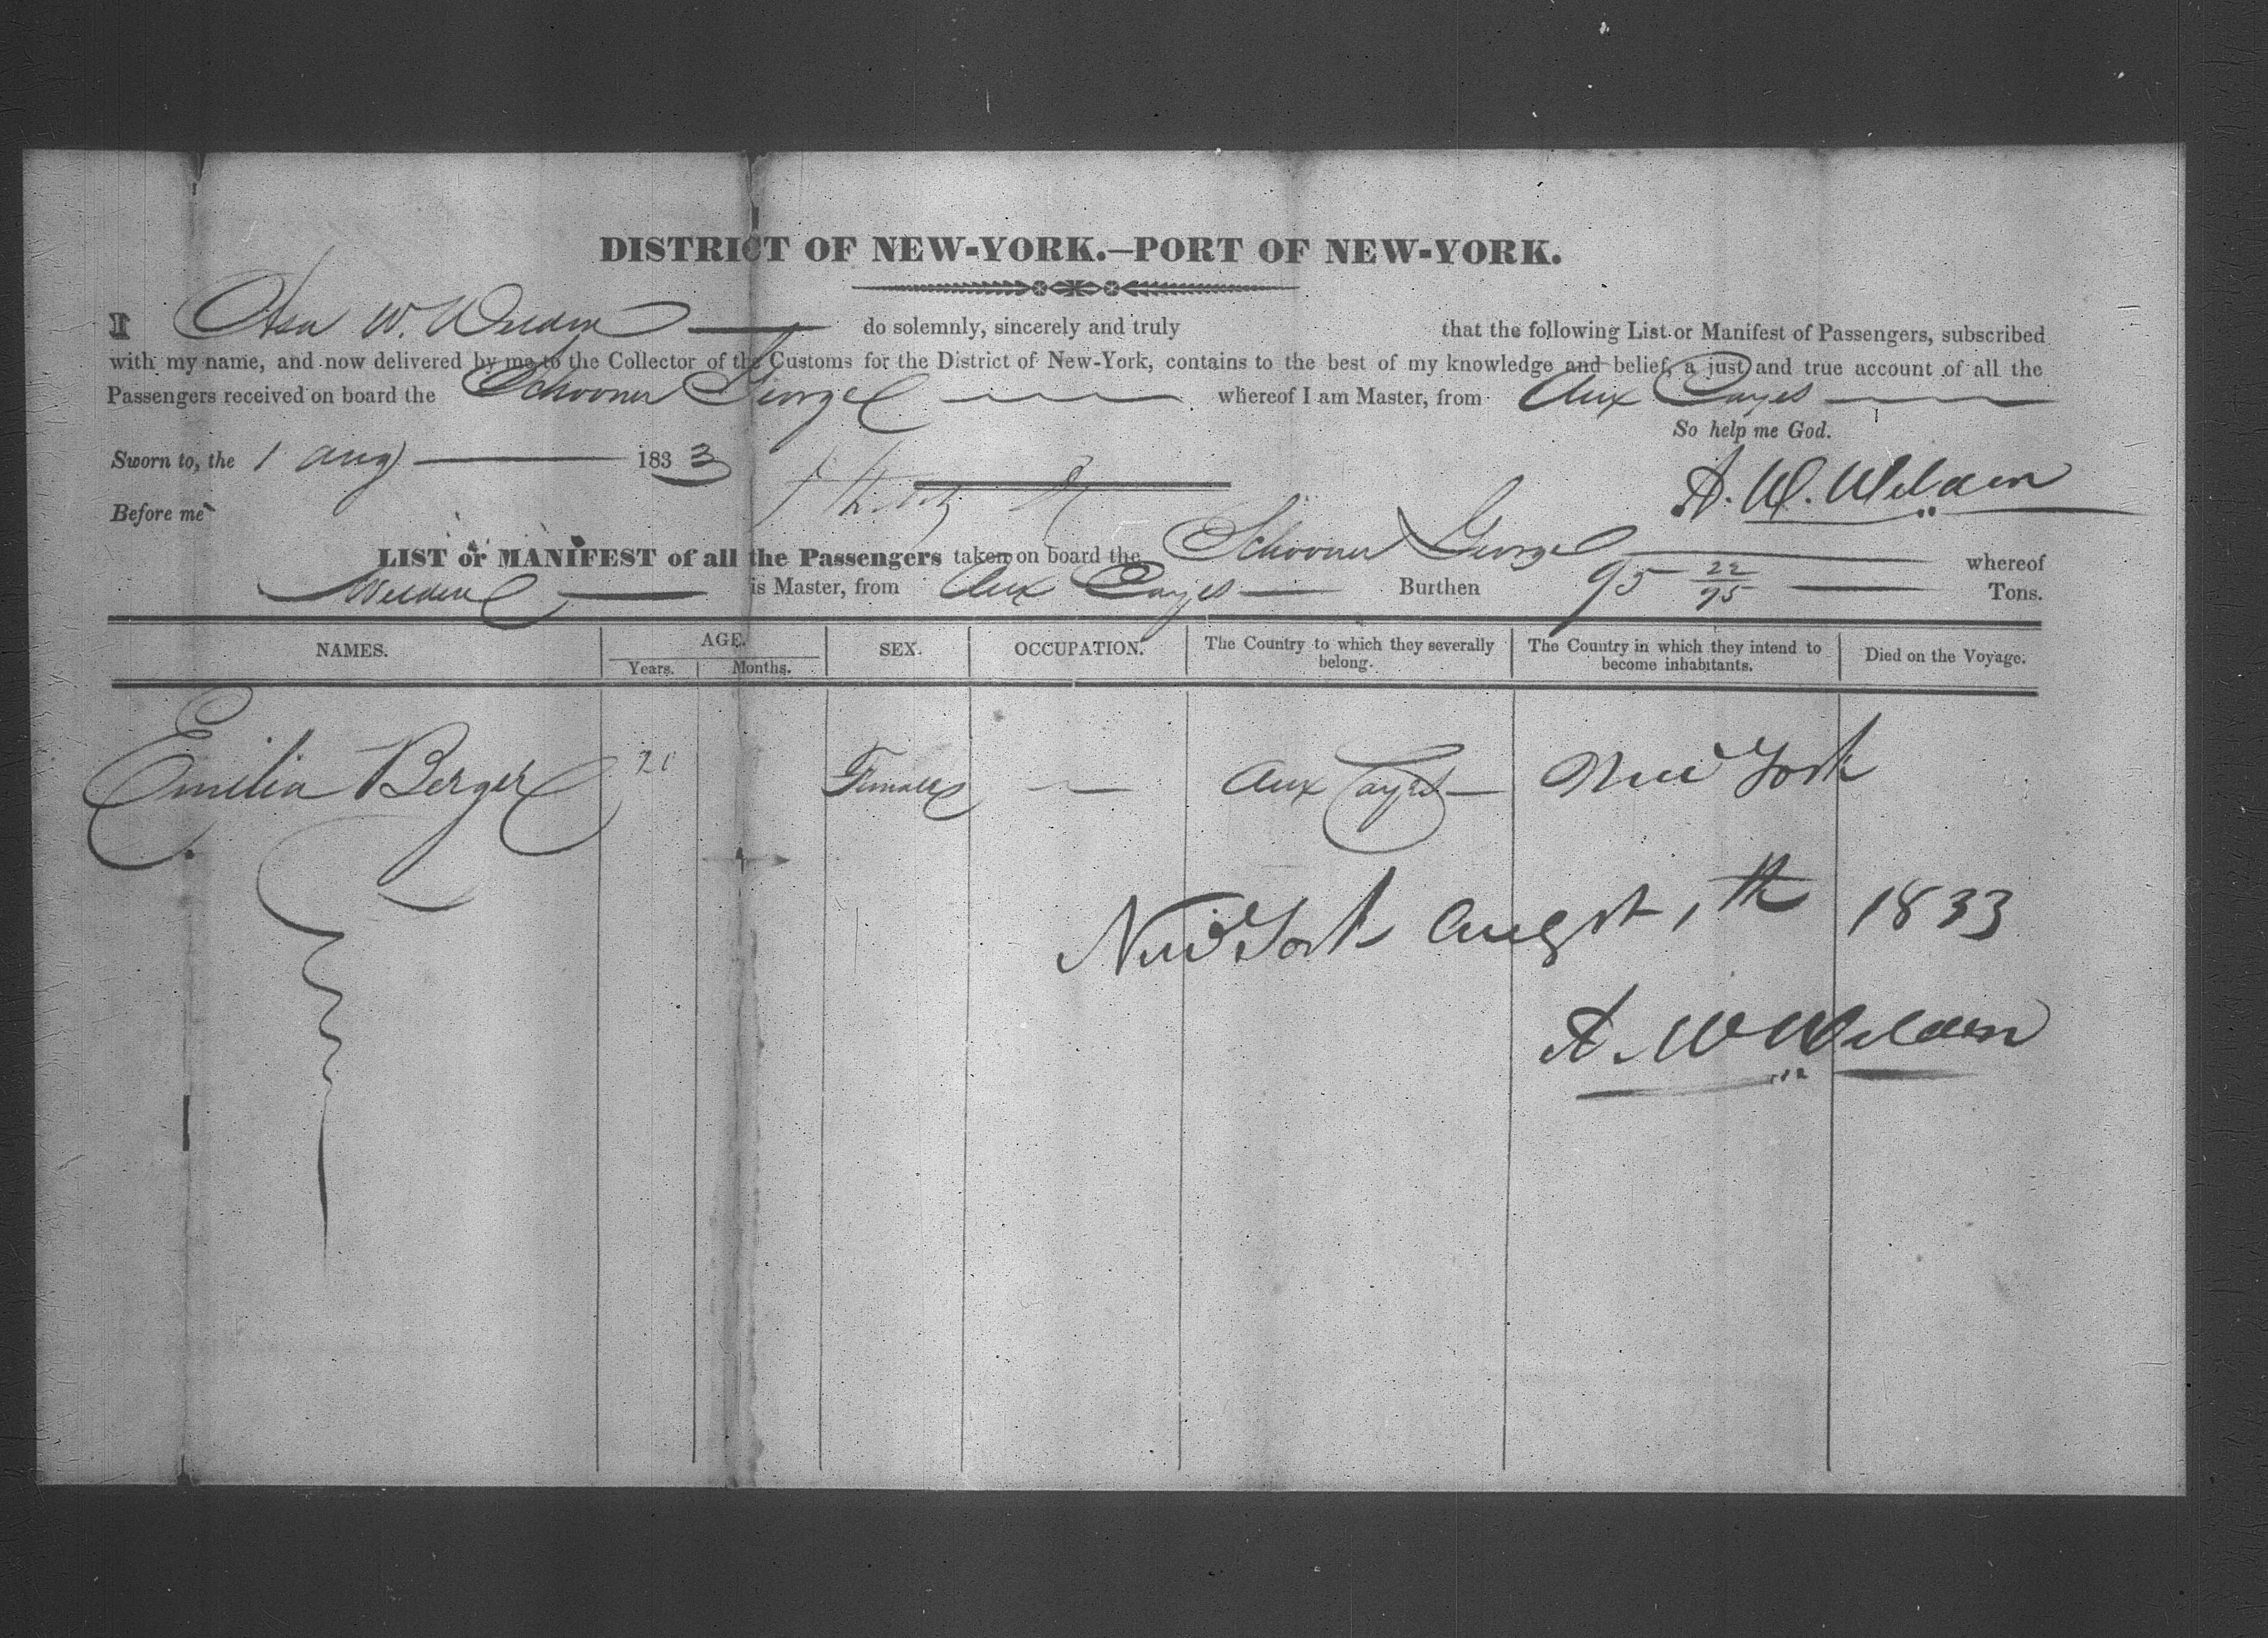 DISTRICT OF NEW-YORK.—PORT OF NEW-YORK.
I Asa W. Welden do solemnly, sincerely and truly that the following List or Manifest of Passengers, subscribed
with my name, and now delivered by me to the Collector of the Customs for the District of New-York, contains to the best of my knowledge and belief, a just and true account of all the
Passengers received on board the Schooner George whereof I am Master, from Aux Cayes
So help me God.
Sworn to, the 1 Aug 1833
A. W. Welden
Before me
LIST or MANIFEST of all the Passengers taken on board the Schooner George whereof
Welden is Master, from Aux Cayes Burthen 95 22/95 Tons.
NAMES. AGE. SEX. OCCUPATION. The Country to which they severally belong. The Country in which they intend to become inhabitants. Died on the Voyage.
Years. Months.
Emilia Berger 20 Female — Aux Cayes New York
New York Augst 1th 1833
A. W Welden